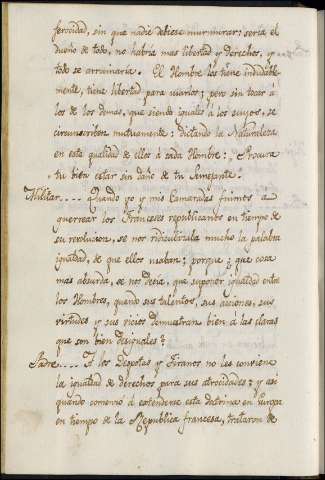 ferocidad, sin que nadie debiese murmurar: seria el
dueño de todo, no habria mas libertad y derechos, y
todo se arruinaria. El Hombre los tiene indudable-
mente, tiene libertad para usarlos; pero sin tocar á
los de los demas, que siendo iguales á los suyos, se
circunscriben mutuamente: dictando la Naturaleza
en esta qualidad de ellos á cada Hombre: Procura
tu bien estar sin daño de tu Semejante.
Militar.... Quando yo y mis Camaradas fuimos á
guerrear los Franceses republicanos en tiempo de
su revolucion, se nos ridiculizaba mucho la palabra
igualdad, de que ellos usaban; porque ¿que cosa
mas absurda, se nos decia, que suponer igualdad entre
los Hombres, quando sus talentos, sus acciones, sus
virtudes y sus vicios demuestran bien á las claras
que son bien desiguales?
Padre.... A los Despotas y Tiranos no les conviene
la igualdad de derechos para sus atrocidades; y asi
quando comenzó á extenderse esta doctrina en Europa
en tiempo de la Republica francesa, trataron de